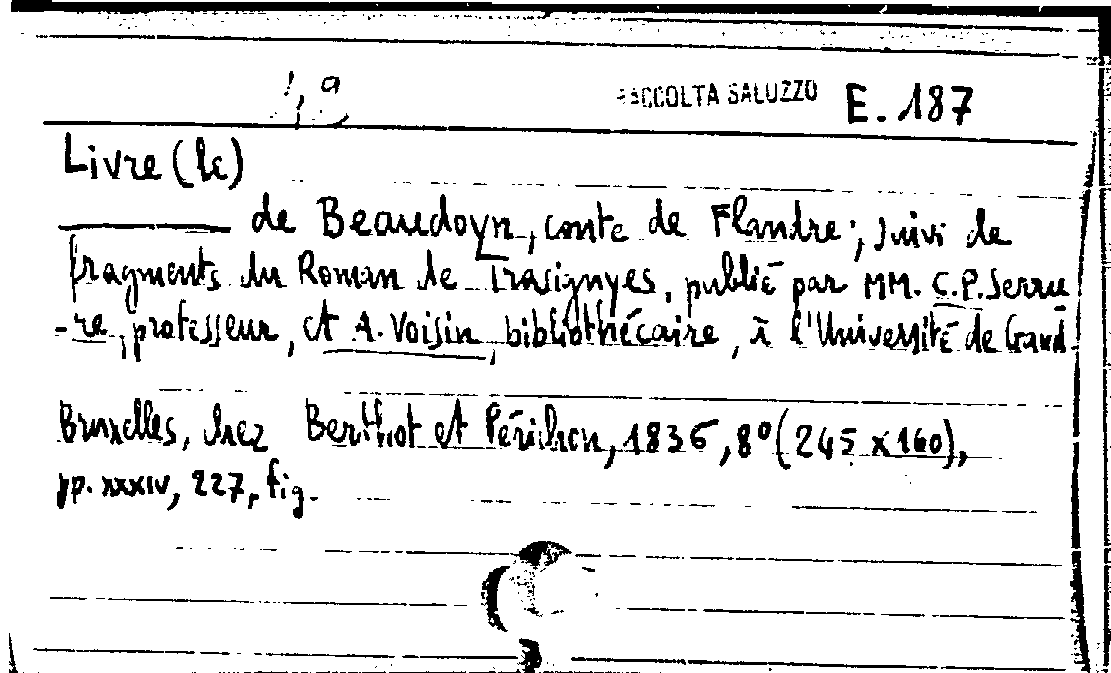 RACCOLTA SALUZZO E. 187
Livre (le)
de Beaudoyn, conte de Flandre; suivi de
fragments du Roman de Trasignyes, publié par MM. C.P. Serru
-re, professeur, et A. Voisin, bibliothécaire, à l'Université de Gand.
Bruxelles, chez Berthot et Périchon, 1836, 8º (245 x 160),
pp. XXXIV, 227, fig.